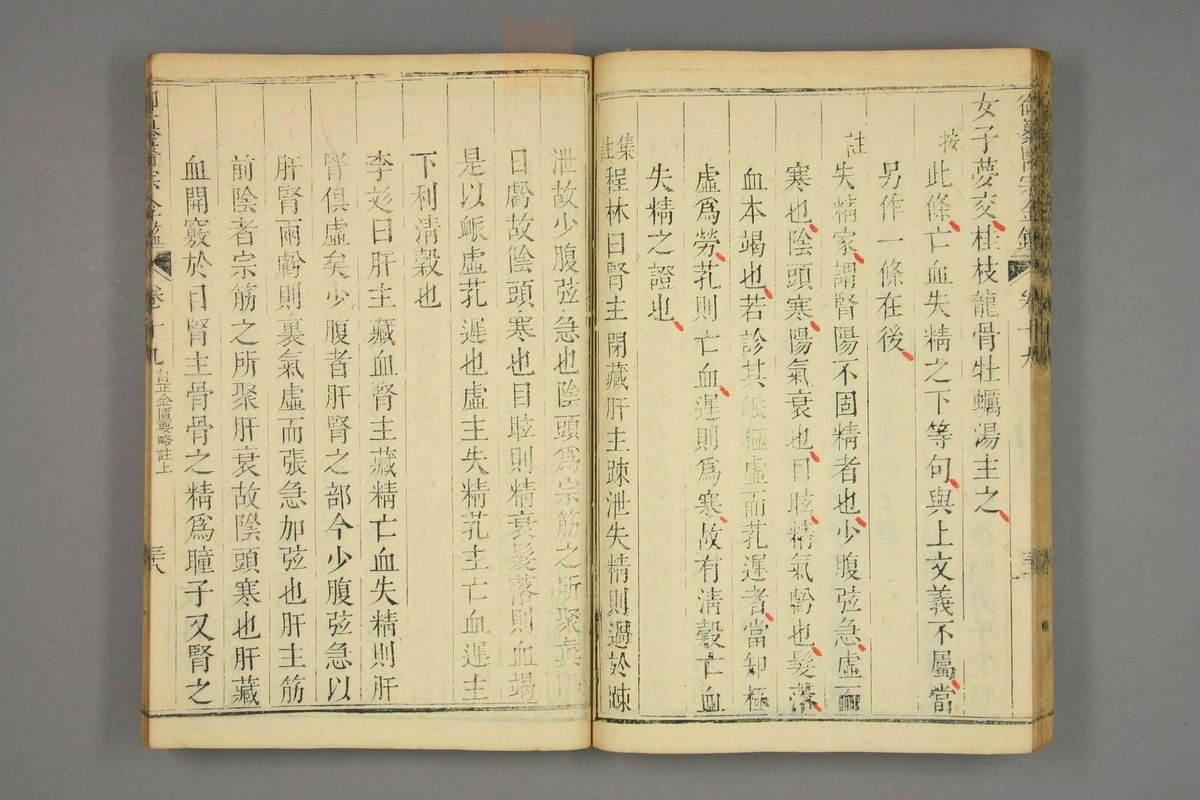 御纂醫宗金鑑 卷十九
女子夢交桂枝龍骨牡蠣湯主之
按 此條亡血失精之下等句與上文義不屬當
另作一條在後
註 失精家謂腎陽不固精者也少腹弦急虛而
寒也陰頭寒陽氣衰也目眩精氣虧也髮落
血本竭也若診其脈極虛而芤遲者當知極
虛爲勞芤則亡血遲則爲寒故有清穀亡血
失精之證也
集註 程林曰腎主閉藏肝主疎泄失精則過於疎
泄故少腹弦急也陰頭爲宗筋之所聚真陽
日虧故陰頭寒也目眩則精衰髮落則血竭
是以脈虛芤遲也虛主失精芤主亡血遲主
下利清穀也
李彣曰肝主藏血腎主藏精亡血失精則肝
腎俱虛矣少腹者肝腎之部今少腹弦急以
肝腎兩虧則裏氣虛而張急加弦也肝主筋
前陰者宗筋之所聚肝衰故陰頭寒也肝藏
血開竅於目腎主骨骨之精爲瞳子又腎之
御纂醫宗金鑑 卷十九 訂正金匱要略註上 三八